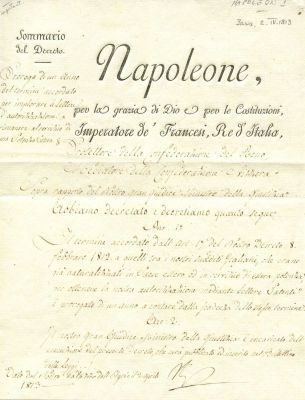 NAPOLEONE I
Paris, 2. IV. 1813
Sommario
del Decreto.
Proroga di un Anno
del termine accordato
per implorare le lettere
d'autorizzazione a
rimanere al servizio di
una Potenza Estera
Napoleone,
per la grazia di Dio e per le Costituzioni,
Imperatore de' Francesi, Re d'Italia,
Protettore della Confederazione del Reno
Mediatore della Confederazione Svizzera
Sopra rapporto del Nostro Gran Giudice Ministro della Giustizia
Abbiamo decretato e decretiamo quanto segue
Art. 1°
Il termine accordato dall'art. 17 del Nostro Decreto 8
febbraio 1812 a quelli tra i nostri sudditi Italiani, che erano
già naturalizzati in Paese estero od in servizio di estera potenza
per ottenere la nostra autorizzazione mediante lettere Patenti
è prorogato di un anno a contare dalla scadenza dello stesso termine
Art. 2°
Il nostro Gran Giudice, Ministro della Giustizia è incaricato dell'
esecuzione del presente Decreto che sarà pubblicato ed inserito nel Bollettino
delle Leggi.
Dato dal Nostro Palazzo dell' aprile
1813